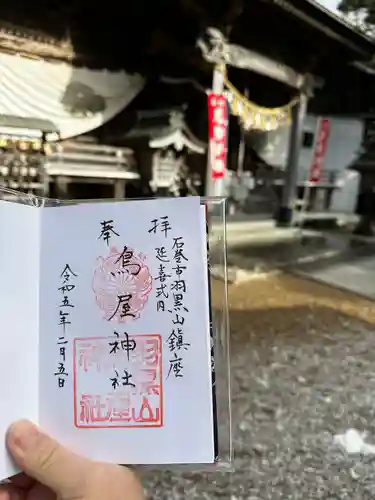 奉拝
石巻市羽黒山鎮座
延喜式内
鳥屋神社
令和五年二月五日
羽黒山
鳥屋
神社